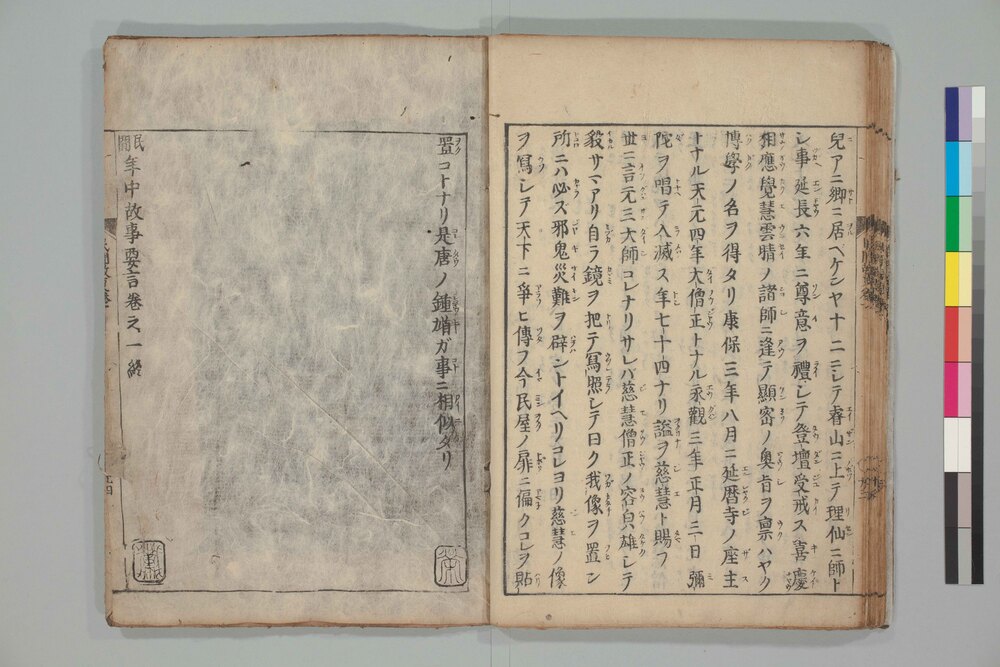 兒アニ郷ニ居ヘケンヤ十二ニシテ睿山ニ上テ理仙ニ師ト
シ事延長六年ニ尊意ヲ禮シテ登壇受戒ス喜慶
相應覺慧雲晴ノ諸師ニ逢テ顯密ノ奥旨ヲ禀ハヤク
博學ノ名ヲ得タリ康保三年八月ニ延暦寺ノ座主
トナル天元四年大僧正トナル永觀三年正月三日彌
陀ヲ唱テ入滅ス年七十四ナリ謚ヲ慈慧ト賜フ
世ニ言元三大師コレナリサレバ慈慧僧正ノ容皃雄シテ
毅サマアリ自ラ鏡ヲ把テ寫照シテ曰ク我像ヲ置ン
所ニハ必ズ邪鬼災難ヲ辟ントイヘリコレヨリ慈慧ノ像
ヲ寫シテ天下ニ爭ヒ傳フ今民屋ノ扉ニ徧クコレヲ貼
置コトナリ是唐ノ鍾馗ガ事ニ相似タリ
民間年中故事要言卷之一終